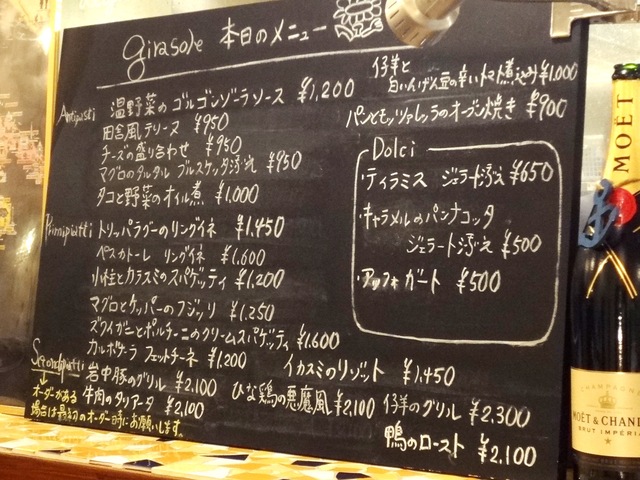 girasole 本日のメニュー
Antipiatti 温野菜のゴルゴンゾーラソース ¥1,200
田舎風テリーヌ ¥950
チーズの盛り合わせ ¥950
マグロのタルタル ブルスケッタ添え ¥950
タコと野菜のオイル煮 ¥1,000
Primipiatti トリッパラグーのリングイネ ¥1.450
ペスカトーレ リングイネ ¥1.600
小柱とカラスミのスパゲッティ ¥1.200
マグロとケッパーのフジッリ ¥1.250
ズワイガニとポルチーニのクリームスパゲッティ ¥1.600
カルボナーラ フェットチーネ ¥1.200
イカスミのリゾット ¥1.450
Secondpiatti 岩中豚のグリル ¥2.100
牛肉のタリアータ ¥2,100
オーダーがある
場合は最初のオーダー時にお願いします。
ひな鶏の悪魔風 ¥2100
仔羊のグリル ¥2,300
鴨のロースト ¥2.100
仔羊と
白いんげん豆の辛いトマト煮込み ¥1.000
パンとモッツァレッラのオーブン焼き ¥900
Dolci
・ティラミス ジェラート添え ¥650
・キャラメルのパンナコッタ
ジェラート添え ¥500
・アッフォガート ¥500
MOËT
CHAMPAGNE
MOËT & CHAND
BRUT IMPÉRIA